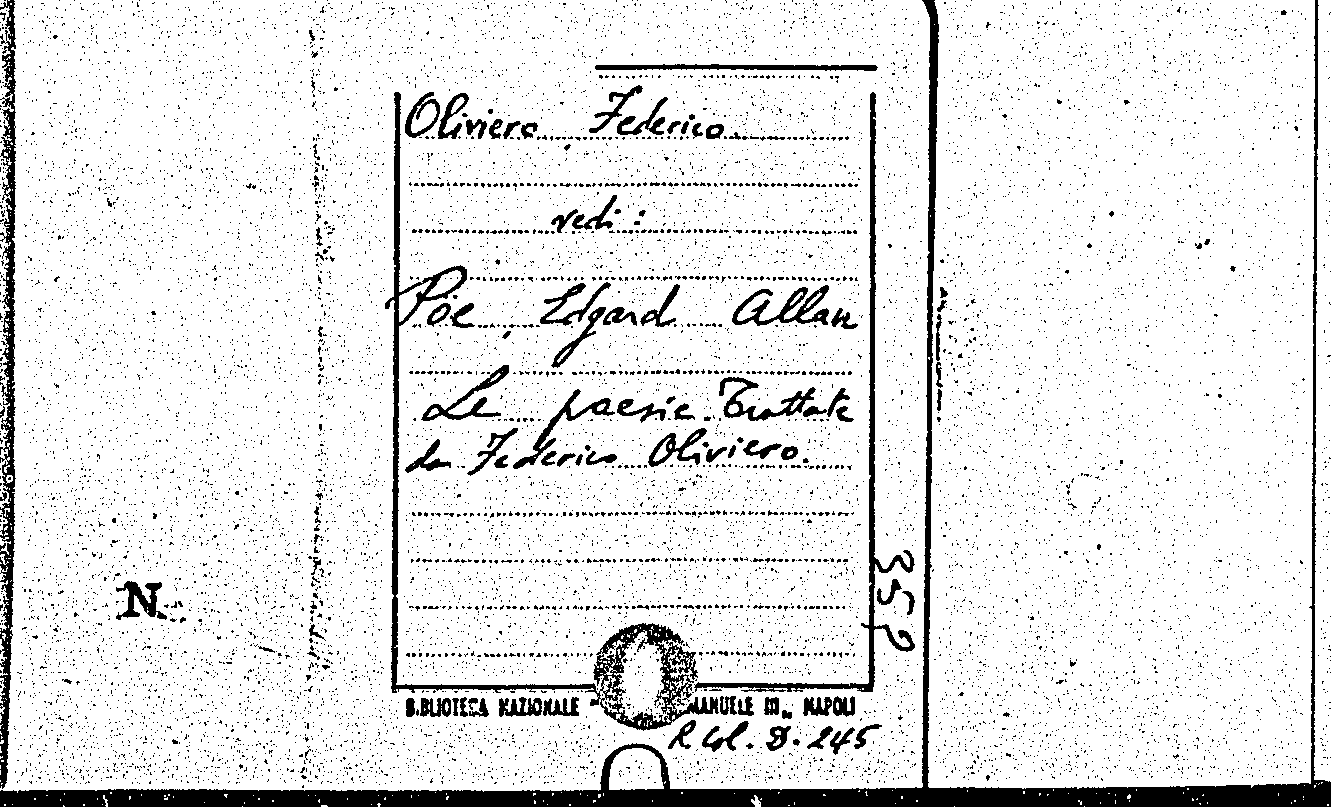 Oliviero Federico.
vedi:
Poe, Edgard Allan
Le poesie. Trattate
da Federico Oliviero.
N.
BIBLIOTECA NAZIONALE " MANUELE III„ NAPOLI
R Col. D. 245